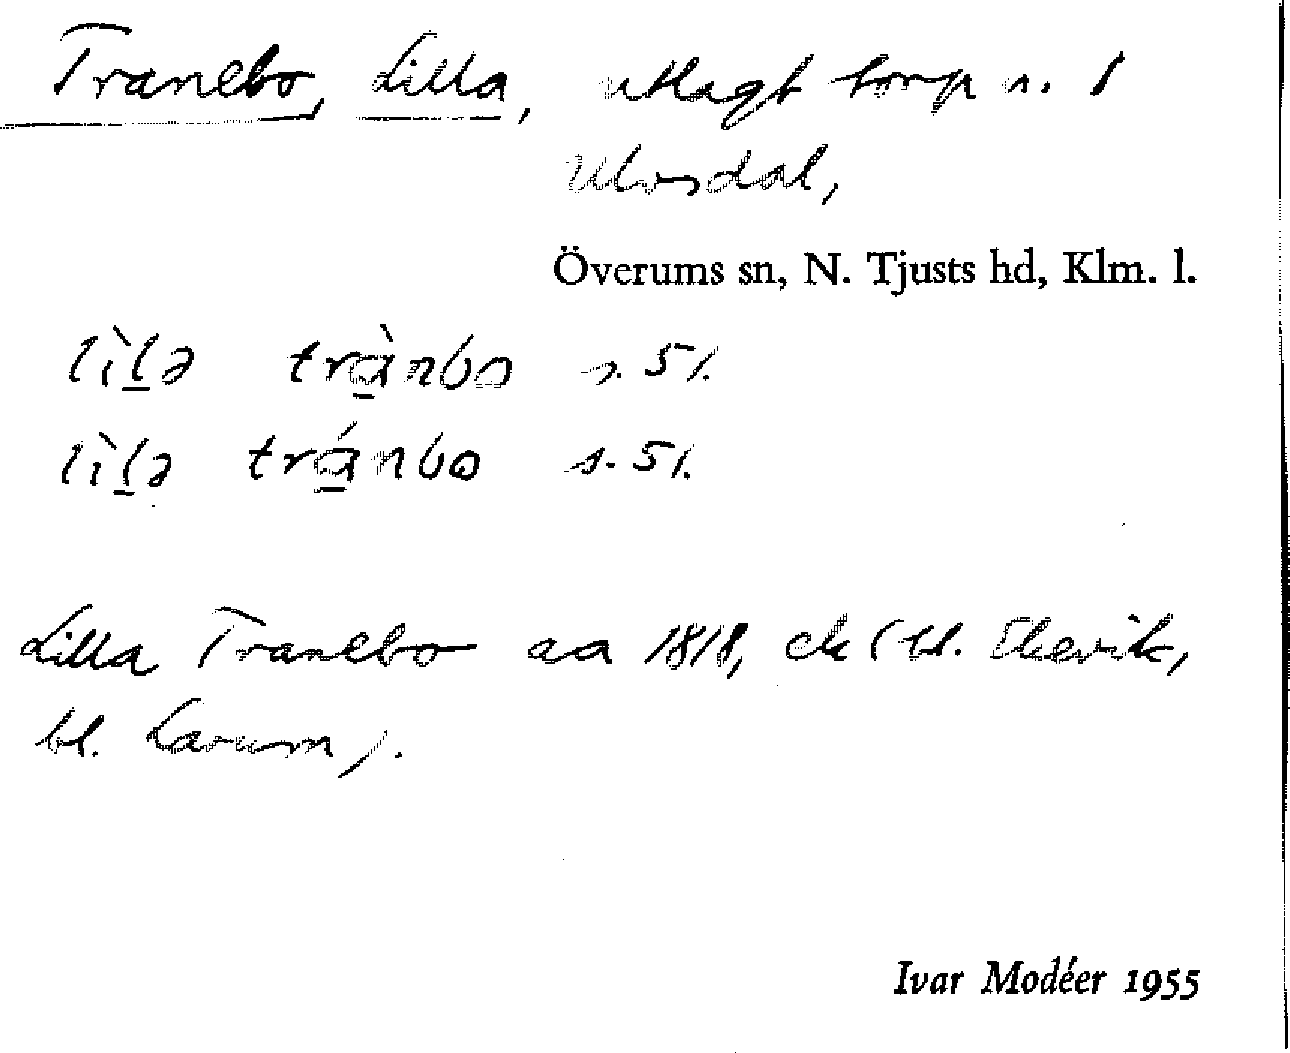 Tranebo, Lilla, utlagt torp n. f
Ulvsdal,
Överums sn, N. Tjusts hd, Klm. l.
lìl̲ə trà̲nbo s. 51.
lìl̲ə trá̲nbo s. 51.
Lilla Tranebo aa 1818, ek (bl. Ekevik,
bl. Larum).
Ivar Modéer 1955